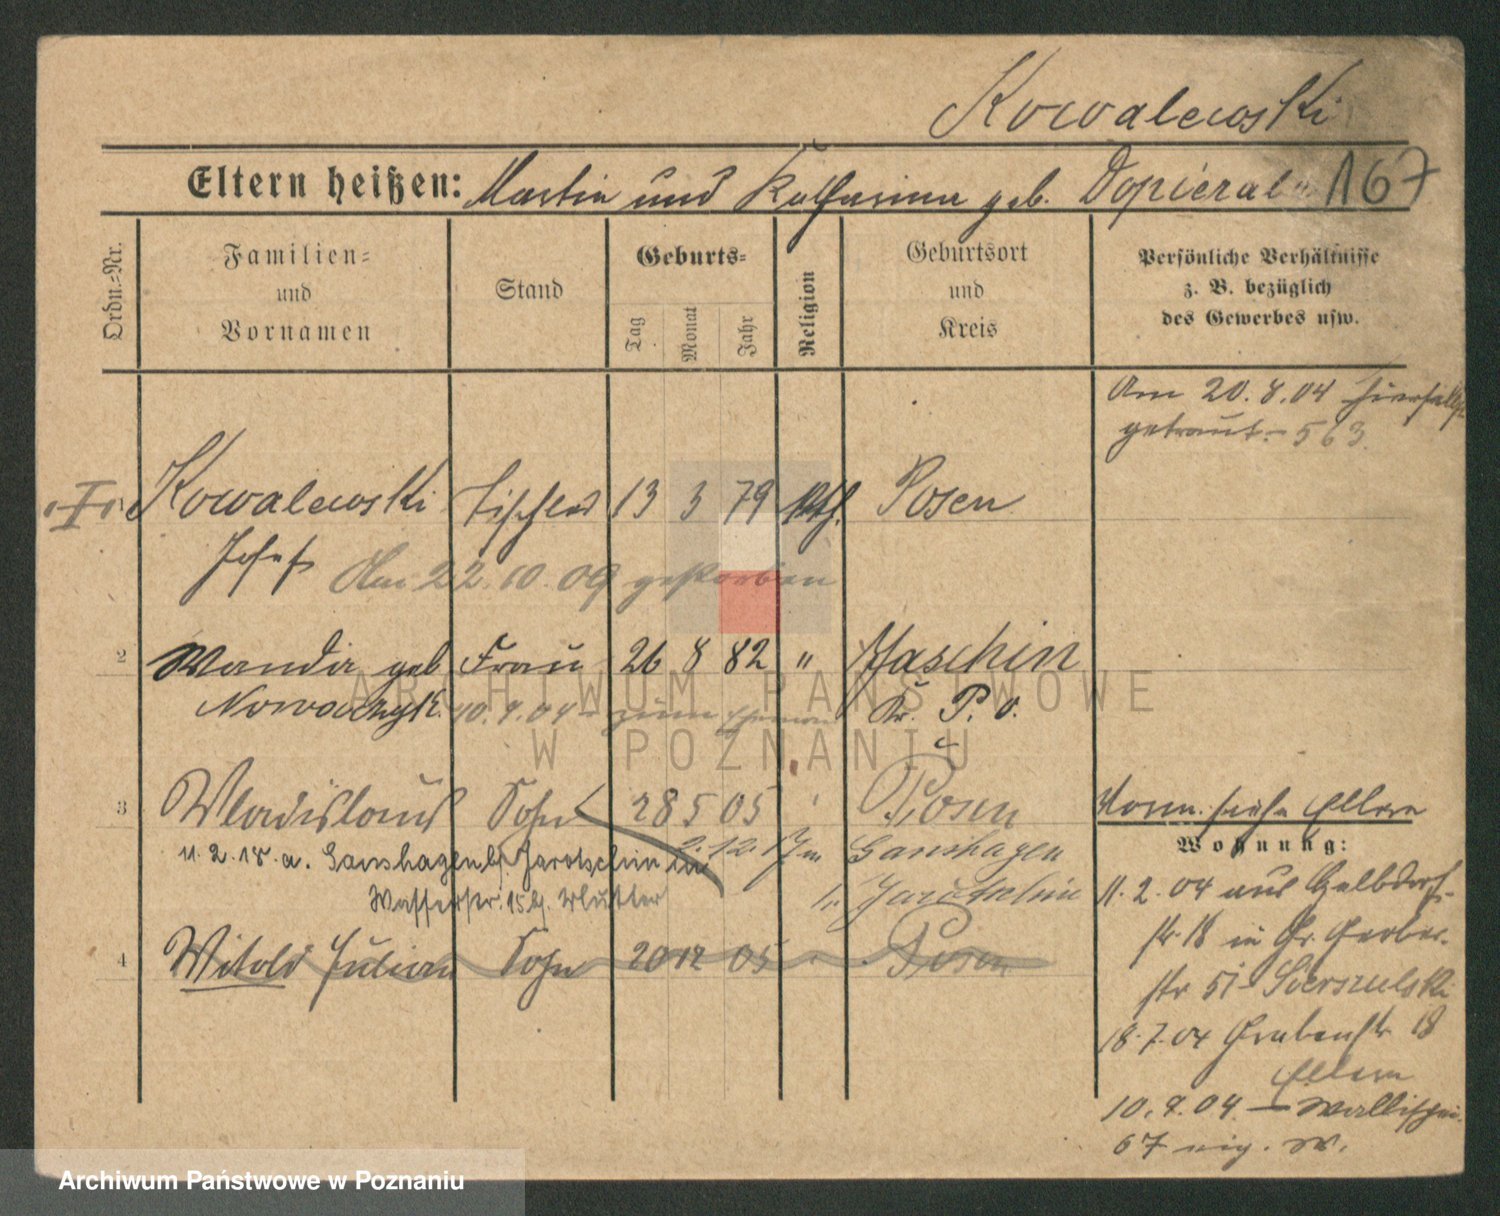 Kowalewski
Eltern heißen: Martin und Katharina geb. Dopierala 167
Ordn.-Nr.
Familien-
und
Vornamen
Stand
Geburts-
Tag
Monat
Jahr
Religion
Geburtsort
und
Kreis
Persönliche Verhältnisse
z. B. bezüglich
des Gewerbes usw.
Am 20.8.04
getraut. 563.
I Kowalewski Tischler 13 3 79 kth. Posen
Josef Am 22.10.09 gestorben
2 Wanda geb Frau 26 8 82 " Jaschin
Nowaczyk. 10.9.04 - zum Ehemann Kr. P. O.
3 Wladislaus Sohn 28 5 05 Posen
Vorm. siehe Eltern
Wohnung:
11.2.18. a. Ganshagen b/. Jarotschin in 2.12.17 n Ganshagen
Wasserstr. 15 b/. Mutter Jarotschin
11.2.04 aus
str. 18 in Gr. Gerber-
str 51
4 Witold Julian Sohn 20 12 05 Posen
18.7.04 Grabenstr. 18
Eltern
10.9.04 - Wallischei
67 eig. W.
ARCHIWUM PAŃSTWOWE
W POZNANIU
Archiwum Państwowe w Poznaniu